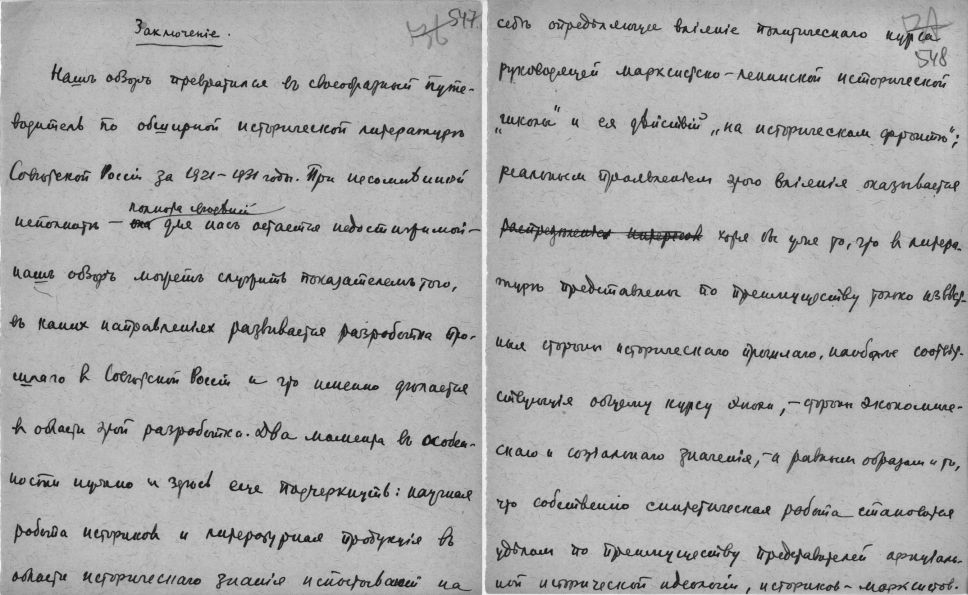 547.
Заключеніе.
Нашъ обзоръ превратился въ своеобразный путе-
водитель по обширной исторической литературѣ
Совѣтской Россіи за 1921–1931 годы. При несомнѣнной
полнота свѣдѣній
неполнотѣ — для насъ остается недостижимой —
нашъ обзоръ можетъ служить показателемъ того,
въ какихъ направленіяхъ развивается разработка про-
шлаго в Совѣтской Россіи и что именно дѣлается
в области этой разработки. Два момента въ особен-
ности нужно и здѣсь еще подчеркнуть: научная
работа историков и литературная продукція въ
области историческаго знанія испытывают на
548
себѣ опредѣляющее вліяніе политическаго курса
руководящей марксистско-ленинской исторической
„школы“ и ея дѣйствій „на историческом фронтѣ“;
реальным проявленіем этого вліянія оказывается
хотя бы уже то, что в литера-
турѣ представлены по преимуществу только извѣст-
ныя стороны историческаго прошлаго, наиболѣе соотвѣт-
ствующія общему курсу эпохи, — стороны экономиче-
скаго и соціальнаго значенія, — а равным образом и то,
что собственно синтетическая работа становится
удѣлом по преимуществу представителей офиціаль-
ной исторической идеологіи, историков-марксистов.